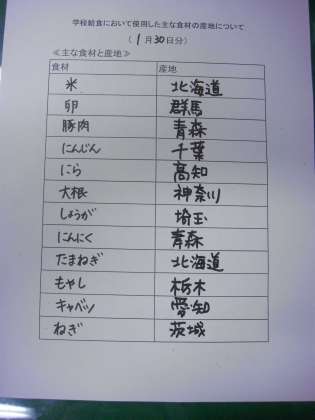 学校給食において使用した主な食材の産地について
(1月30日分)
≪主な食材と産地≫
食材 産地
米 北海道
卵 群馬
豚肉 青森
にんじん 千葉
にら 高知
大根 神奈川
しょうが 埼玉
にんにく 青森
たまねぎ 北海道
もやし 栃木
キャベツ 愛知
ねぎ 茨城